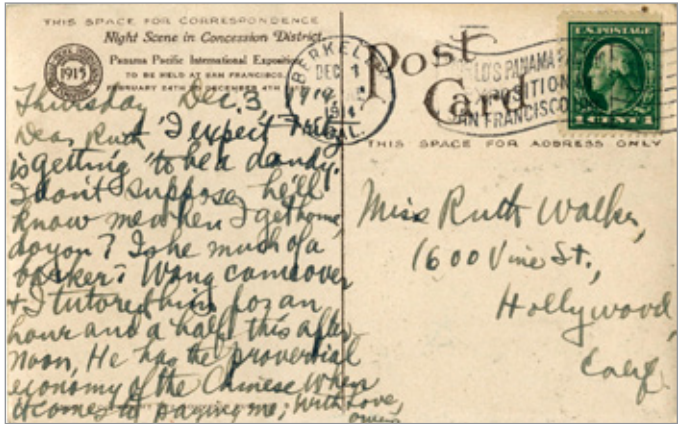 THIS SPACE FOR CORRESPONDENCE
Night Scene in Concession District.
Panama Pacific International Exposition
TO BE HELD AT SAN FRANCISCO,
FEBRUARY 20TH TO DECEMBER 4TH
1915
Thursday Dec. 3, 1914
Dear Ruth I expect
is getting to be a dandy.
I don't suppose he'll
know me when I get home,
do you? Is he much of a
barker? Wang came over
& I tutored him for an
hour and a half this after
noon, He has the proverbial
economy of the Chinese when
it comes to paying me; With love,
BERKELEY
DEC
CAL.
Post
Card
WORLD'S PANAMA
EXPOSITION
SAN FRANCISCO
U.S. POSTAGE
1 CENT 1
THIS SPACE FOR ADDRESS ONLY
Miss Ruth Walker,
1600 Vine St.,
Hollywood,
Calif.